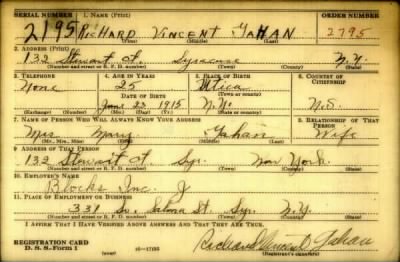 SERIAL NUMBER 1. NAME (Print) ORDER NUMBER
2195 RICHARD VINCENT GAHAN 2795
(First) (Middle) (Last)
2. ADDRESS (Print)
132 Stewart St. Syracuse N.Y.
(Number and street or R. F. D. number) (Town) (County) (State)
3. TELEPHONE 4. AGE IN YEARS 5. PLACE OF BIRTH 6. COUNTRY OF CITIZENSHIP
None 25 Utica
DATE OF BIRTH (Town or county)
June 23 1915 N.Y. U.S.
(Exchange) (Number) (Mo.) (Day) (Yr.) (State or country)
7. NAME OF PERSON WHO WILL ALWAYS KNOW YOUR ADDRESS 8. RELATIONSHIP OF THAT PERSON
Mrs. Mary Gahan Wife
(Mr., Mrs., Miss) (First) (Middle) (Last)
9. ADDRESS OF THAT PERSON
132 Stewart St. Syr. New York.
(Number and street or R. F. D. number) (Town) (County) (State)
10. EMPLOYER'S NAME
Blocks Inc.
11. PLACE OF EMPLOYMENT OR BUSINESS
331 So. Salina St. Syr. N.Y.
(Number and street or R. F. D. number) (Town) (County) (State)
I AFFIRM THAT I HAVE VERIFIED ABOVE ANSWERS AND THAT THEY ARE TRUE.
REGISTRATION CARD
D. S. S. Form 1 16-17105 Richard Vincent Gahan
(Registrant's signature)